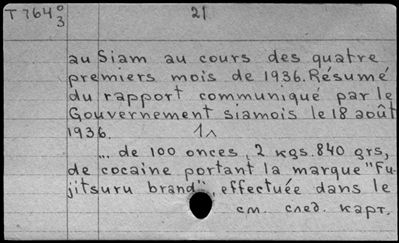 T 764 0/3 21
au Siam au cours des quatre
premiers mois de 1936. Résumé
du rapport communiqué par le
Gouvernement siamois le 18 août
1936. 1л
... de 100 onces, 2 kgs. 840 grs,
de cocaine portant la marque "Fu-
jitsuru brand", effectuée dans le
см. след. карт.